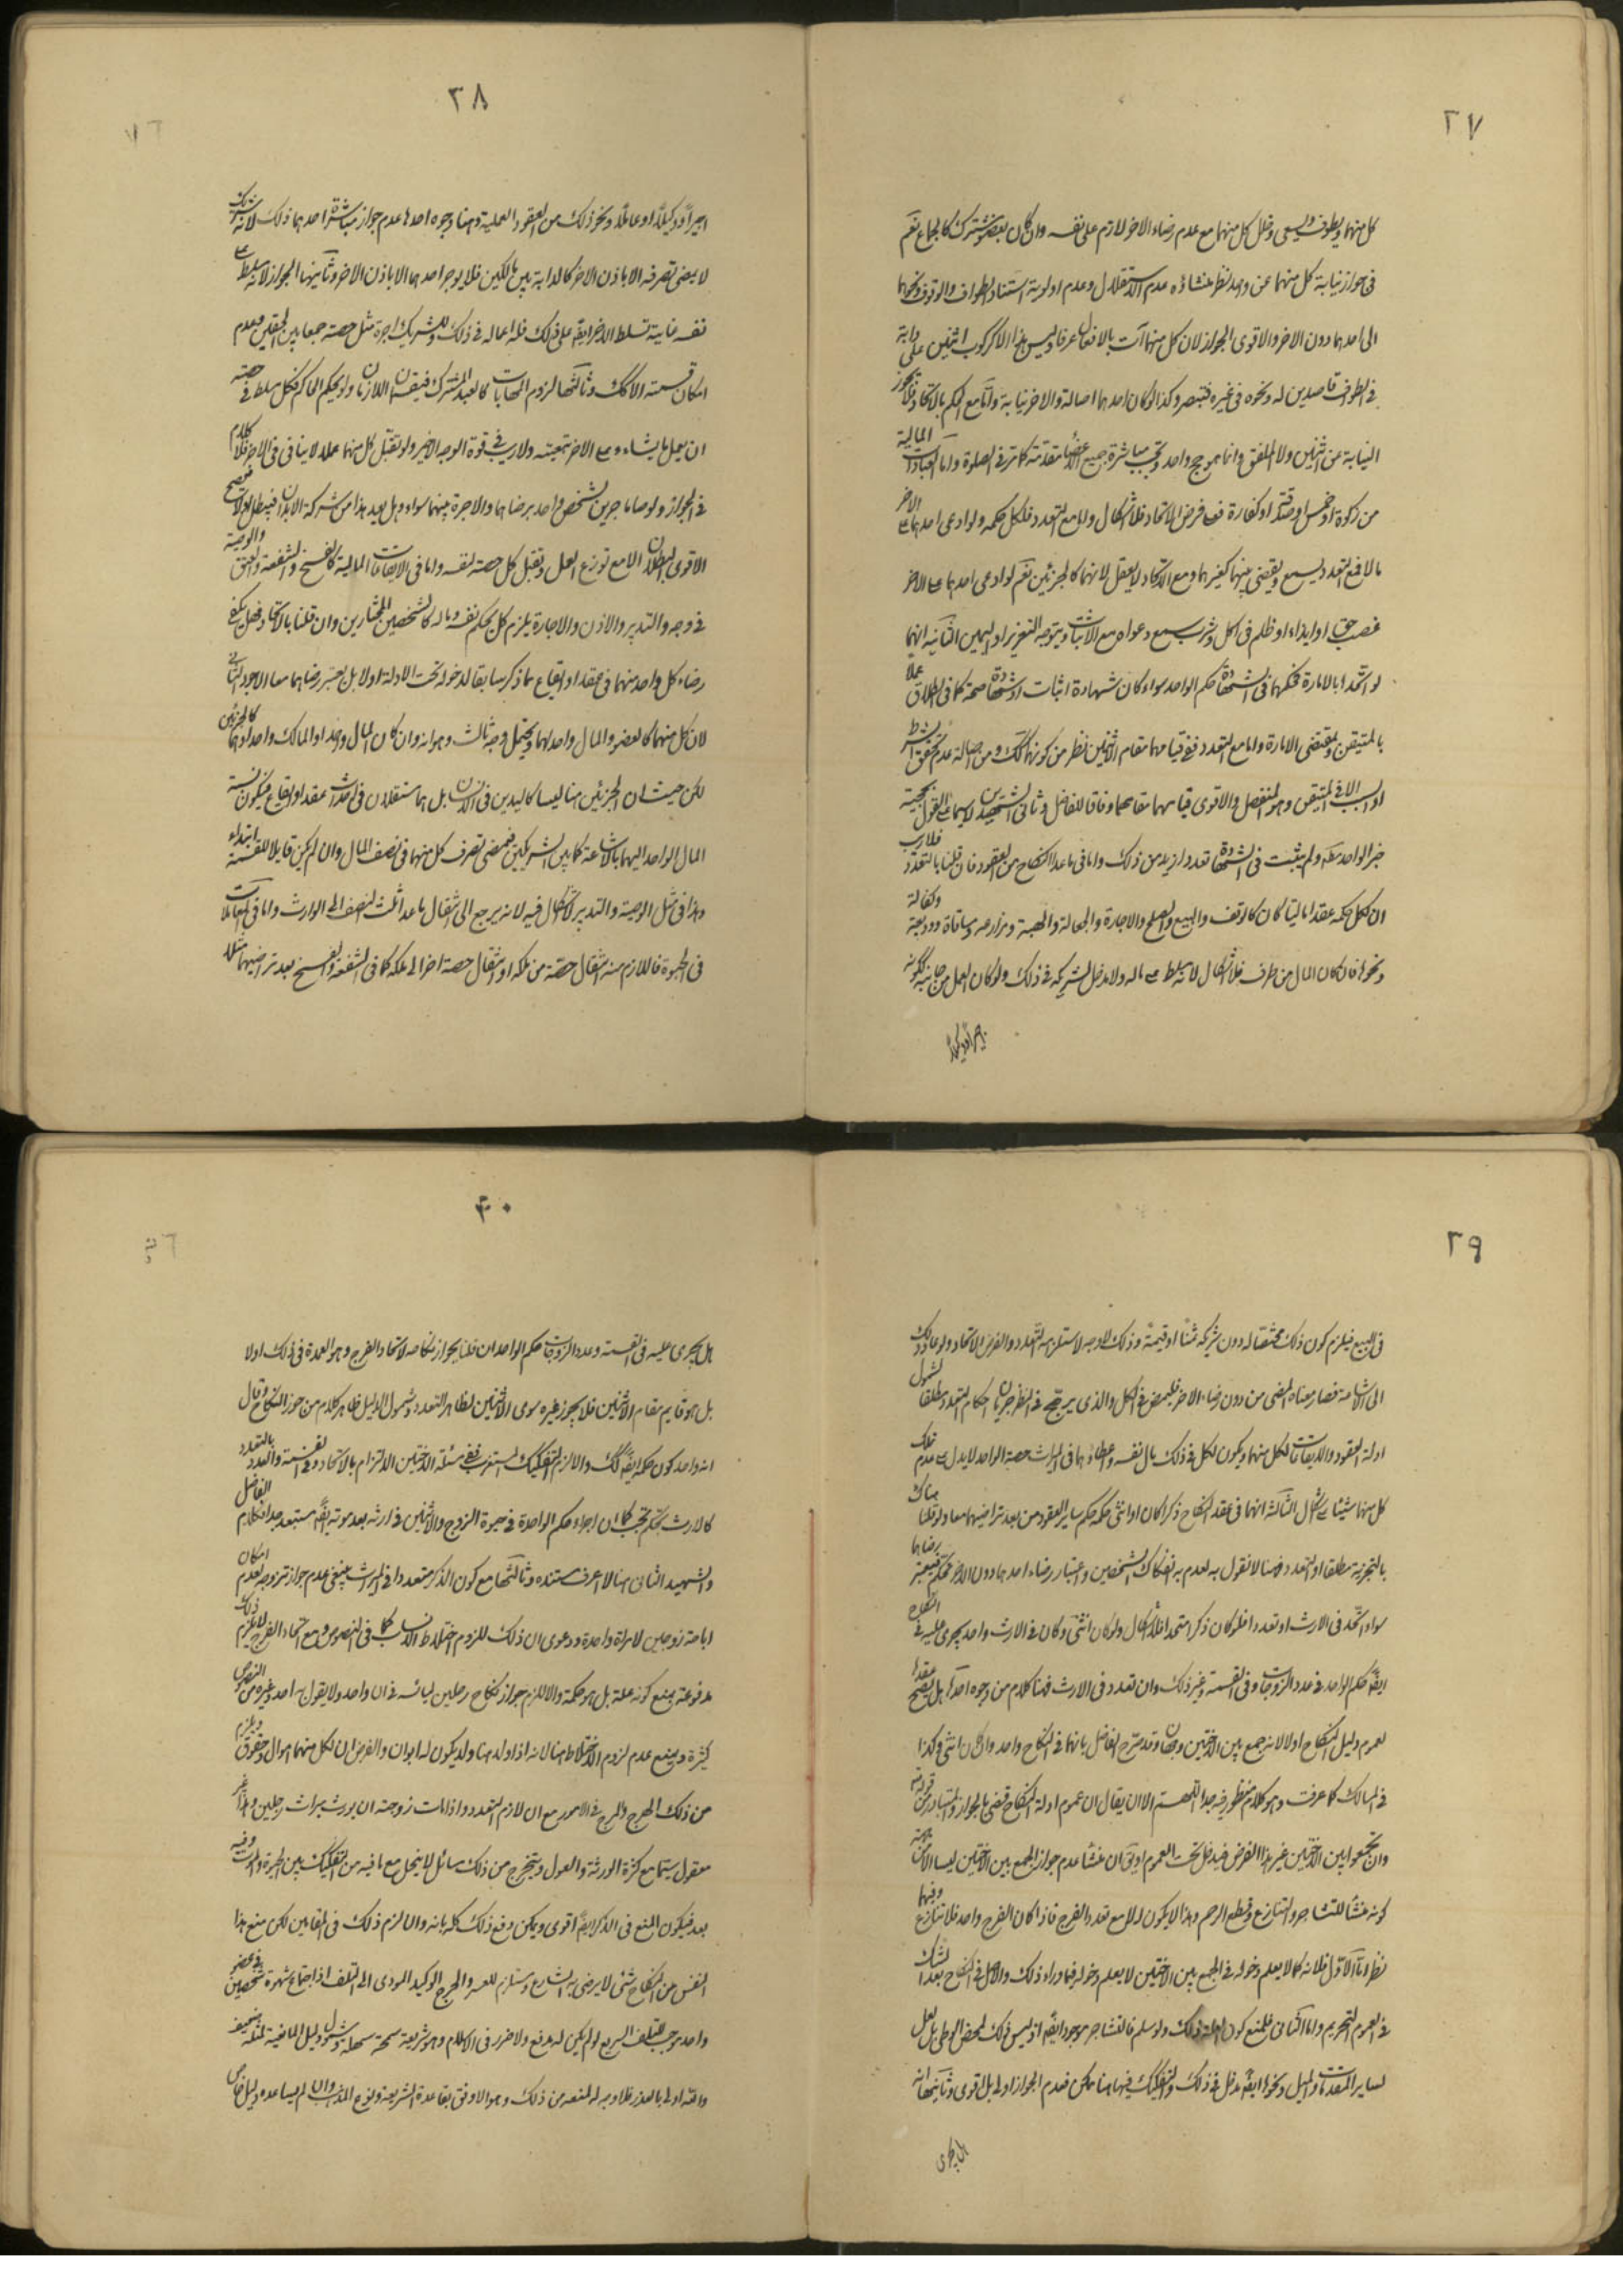 ٢٧
كل منهما ويطوف ويسعى وخلل كل منهما مع عدم رضاء الاخر لازم على نفسه وان كان بعضه مشترك كالجماع نعم
فى جواز نيابة كل منهما عن واحد نظر منشاؤه عدم الاستقلال وعدم اولوية استناد الطواف والوقوف ونحوها
الى احدهما دون الاخر والاقوى الجواز لان كل منهما آت بالافعال عرفا وليس هذا الا كركوب اثنين على دابة
فى الطواف قاصدين له ونحوه فى غيره فتبصر وكذا لو كان احدهما اصالة والاخر نيابة واما مع الحكم بالاتحاد فلا يجوز
النيابة عن اثنين ولا الملفق وانما هو حج واحد وتجب مباشرة جميع الاعضاء متقدمة كما ترى فى الصلوة واما العبادات المالية
من زكوة او خمس او صدقة او كفارة ففى فرض الاتحاد فلا اشكال واما مع التعدد فلكل حكمه ولو ادعى احدهما على الاخر
مالا فمع التعدد يسمع ويقضى بينهما كغيرهما ومع الاتحاد لا يعقل لانهما كالجزئين نعم لو ادعى احدهما على الاخر
غصب حق او ايذاء او ظلم فى اكل وشرب يسمع دعواه مع الاثبات ويتوجه التعزير او اليمين الثانية انهما
لو اتحدا بالامارة فحكمهما فى الشهادة حكم الواحد سواء كان شهادة اثبات او شهادة صحة كما فى الطلاق عملا
بالمتيقن وبمقتضى الامارة واما مع التعدد ففى قيامهما مقام اثنين نظر من كونهما كك ومن اصالة عدم تحقق الشرط
او السبب الا فى المتيقن وهو المنفصل والاقوى قيامهما مقامهما وفاقا للفاضل وثانى الشهيدين لا سيما على القول بحجية
خبر الواحد مطلقا ولم يثبت فى الشهادة تعدد ازيد من ذلك واما فى ما عدا النكاح من العقود فان قلنا بالتعدد فلا ريب
ان لكل حكمه عقدا ماليا كان كالوقف والبيع والصلح والاجارة والجعالة والهبة ومزارعه ومساقاة ووديعة وكفالة
ونحوها فان كان المال من طرف فلا اشكال لانه يسلط على ماله ولا مدخل لشريكه فى ذلك ولو كان العمل من جانبه لكونه
اجيرا او وكيلا
٢٨
اجيرا او وكيلا او عاملا ونحو ذلك من العقود العملية فهنا وجوه احدها عدم جواز مباشرة احدهما ذلك لانه شريك
لا يمضى تصرفه الا باذن الاخر كالدابة بين مالكين فلا يوجر احدهما الا باذن الاخر وثانيها الجواز لانه سلط على
نفسه غايته تسلط الاخر ايضا على ذلك فله اعماله فى ذلك وللشريك اجرة مثل حصته جمعا بين الحقين وعدم
امكان قسمته الا كك وثالثها لزوم المهايات كالعبد المشترك فيقسمان اللازمان ولو بحكم الحاكم فكل سلط فى حصته
ان يعمل ما يشاء وعلى الاخر تبعيته ولا ريب فى قوة الوجه الاخير ولو تقبل كل منهما عملا لا ينافى فى الاخر فلا كلام
فى الجواز ولو صارا اجيرين لشخص واحد برضاهما والاجرة بينهما سواء وهل يعد هذا من شركة الابدان فيبطل اولا فيصح
الاقوى البطلان الا مع توزع العمل وتقبل كل حصته لنفسه واما فى الايقاعات المالية كالفسخ والشفعة والعتق والوصية
فى وجه والتدبير والاذن والاجارة يلزم كل بحكم نفسه وماله كالشخصين المختارين وان قلنا بالاتحاد فهل يكفى
رضاء كل واحد منهما فى عقد او ايقاع مما ذكر سابقا لدخوله تحت الادلة او لا بل يعتبر رضاهما معا الاجود الثانى
لان كل منهما كالعضو والمال واحد لهما ويحتمل وجه ثالث وهو انه وان كان المال واحد او المالك واحد او هما كالجزئين
لكن حيث ان الجزئين هنا ليسا كاليدين فى الانسان بل هما مستقلان فى احداث عقد او ايقاع فيكون نسبة
المال الواحد اليهما بالاشاعة كما بين الشريكين فيمضى تصرف كل منهما فى نصف المال وان لم يكن قابلا للقسمة ابتداء
وهذا فى مثل الوصية والتدبير لا اشكال فيه لانه يرجع الى انتقال ما عدا ثلث النصف الى الوارث واما فى المعاملات
فى الحيوة فاللازم منه انتقال حصته من ملكه او انتقال حصة اخر الى ملكه كما فى الشفعة والفسخ بعد تراضيهما مثلا
٢٩
فى البيع فيلزم كون ذلك مختصا له دون شريكه ثمنا او قيمة وذلك لا وجه لاستلزامه التعدد والفرض الاتحاد ولو عاد ذلك
الى الاشاعة فصار معناه المضى من دون رضاء الاخر فليمض فى الكل والذى يرجح فى النظر جريان احكام التعدد مطلقا لشمول
ادلة العقود والايقاعات لكل منهما ويكون لكل فى ذلك مال نفسه واعطائهما فى الميراث حصة الواحد لا يدل على عدم تملك
كل منهما شيئا على اشكال الثالثة انهما فى عقد النكاح ذكرا كان او انثى حكمه حكم ساير العقود من بعد تراضيهما معا ولو قلنا هناك
بالتجزية مطلقا او التعدد فهنا لا نقول به لعدم انفكاك الشخصين واعتبار رضاء احدهما دون الاخر تحكم فيعتبر رضاهما
سواء اتحد فى الارث او تعددا فلو كان ذكرا متحدا فلا اشكال ولو كان انثى وكان فى الارث واحد يجرى عليه فى النكاح
ايضا حكم الواحد فى عدد الزوجات وفى القسمة وغير ذلك وان تعدد فى الارث فهنا كلام من وجوه احدها هل يصح عقدها
لعموم دليل النكاح او لا لانه جمع بين الاختين وجهان وقد صرح الفاضل بانهما فى النكاح واحد وان كان انثى وكذا
فى المسالك كما عرفت وهو كلام منظور فيه جدا اللهم الا ان يقال ان عموم ادلة النكاح قضى بالجواز والمتبادر من قوله تعالى
وان تجمعوا بين الاختين غير هذا الفرض فيدخل تحت العموم او يق ان منشا عدم جواز الجمع بين الاختين ليس الا من جهة
كونه منشأ للتشاجر والتنازع وقطع الرحم وهذا لا يكون الا مع تعدد الفرج فاذا كان الفرج واحد فلا تنازع وفيهما
نظر اما الاول فلانه كما لا يعلم دخوله فى الجمع بين الاختين لا يعلم دخوله فيما وراء ذلك والاصل فى النكاح بعد الشك
فى العموم التحريم واما الثانى فلمنع كون العلة ذلك ولو سلم فالتشاجر موجود ايضا اذ ليس ذلك لمحض الوطى بل لعل
لساير المقدمات والميل ونحوها ايضا مدخل فى ذلك والتفكيك فيهما هنا ممكن فعدم الجواز اولى بل اقوى وثانيها انه
هل يجرى
٣٠
هل يجرى عليه فى القسمة وعدد الزوجات حكم الواحد ان قلنا بجواز نكاحه لاتحاد الفرج وهو العمدة فى ذلك او لا
بل هو قايم مقام الاثنين فلا يجوز غيره سوى الاثنين لظاهر التعدد وشمول الدليل ظاهر كلام من جوز النكاح وقال
انه واحد كون حكمه ايضا كك والا لزم التفكيك المستغرب ففى مسئلة الاختين الالتزام بالاتحاد وفى القسمة والعدد بالتعدد
كالارث تحكم عجب كما ان اجراء حكم الواحدة فى حيوة الزوج والاثنين فى ارثه بعد موته ايضا مستبعد جدا فكلام الفاضل
والشهيد الثانى هنا لا اعرف مستنده وثالثها مع كون الذكر متعددا فى الميراث ينبغى عدم جواز تزوجه لعدم امكان
اباحة زوجين لامراة واحدة ودعوى ان ذلك للزوم اختلاط الانساب كما فى النصوص ومع اتحاد الفرج لا يلزم ذلك
مدفوعة بمنع كونه علة بل هو حكمة والا للزم جواز نكاح رجلين ليائسه فى ان واحد ولا يقول به احد وغيره من النصوص
كثيرة وبمنع عدم لزوم الاختلاط هنا لانه اذا ولد هنا ولد يكون له ابوان والفرض ان لكل منهما اموال وحقوق ويلزم
من ذلك الهرج والمرج فى الامور مع ان لازم التعدد واذا مات زوجته ان يورث ميراث رجلين وهذا غير
معقول سيما مع كثرة الورثة والعول ويتخرج من ذلك مسائل لا ينحل مع ما فيه من التفكيك بين الحيوة والموت وفيه
بعد فيكون المنع فى الذكر ايضا اقوى ويمكن دفع ذلك كله بانه وان لزم ذلك فى المقامين لكن منع هذا
النفس من النكاح شىء لا يرضى به الشارع ومستلزم للعسر والحرج الوكيد المودى الى التلف اذ اجتماع شهوة شخصين فى عضو
واحد موجب للتلف السريع لو لم يكن له مدفع ولا ضرر فى الاسلام وهو شريعة سمحة سهلة وشمول دليل المانعية لمثله ضعيف
والله اولى بالعذر فلا وجه له لمنعه من ذلك وهو الاوفق بقاعدة الشريعة وان لم يساعده دليل خاص